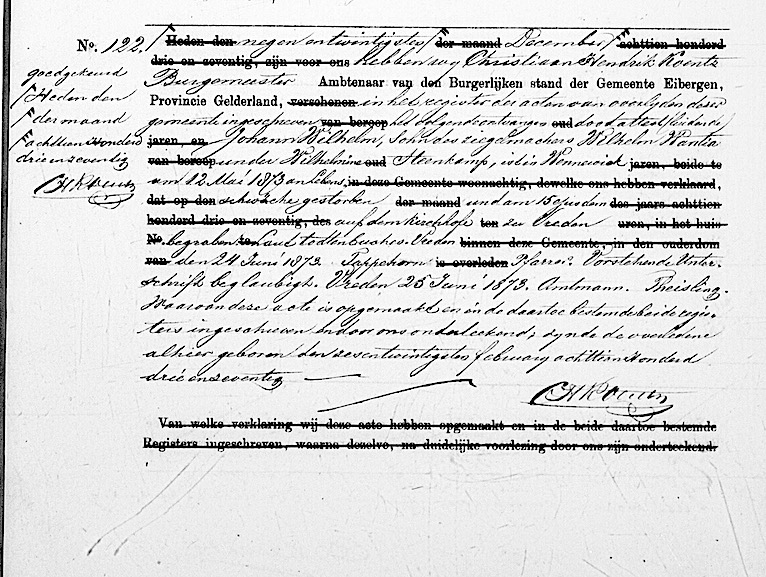 No. 122. Heden den negen en twintigsten der maand December achttien honderd
drie en zeventig, zijn voor ons hebben wy Christiaan Hendrik Koentz
Burgemeester Ambtenaar van den Burgerlijken stand der Gemeente Eibergen,
Provincie Gelderland, verschenen in het register der acten van overlyden dezer
gemeente ingeschreven van beroep het volgende ontvangen oud doodattest luidende
jaren, en Johann Wilhelm, Sohn des Wilhelm
van beroep und der Wilhelmine oud Steenkamp, ist in Wennewick jaren, beide te
am 12 Mai 1873 in deze Gemeente woonachtig, dewelke ons hebben verklaard,
dat op den Schwäche gestorben der maand und am 15 ejusdem des jaars achttien
honderd drie en zeventig, des auf dem Kirchhofe ten zu Vreden uren, in het huis
No. begraben te Laut Todtenbuches. Vreden binnen deze Gemeente, in den ouderdom
van den 24 Juni 1873. Tappehorn is overleden Pfarrer. Vorstehende Unter-
schrift beglaubigt. Vreden 25 Juni 1873. Amtmann. Theising.
Waarvan deze acte is opgemaakt en in de daartoe bestemde beide regis-
ters ingeschreven en door ons onderteekend, zynde de overledene
alhier geboren den zesentwintigsten february achttien honderd
drie en zeventig
Van welke verklaring wij deze acte hebben opgemaakt en in de beide daartoe bestemde
Registers ingeschreven, waarna dezelve, na duidelijke voorlezing door ons zijn onderteekend.
goedgekeurd
Heden den
der maand
achttien honderd
drie en zeventig